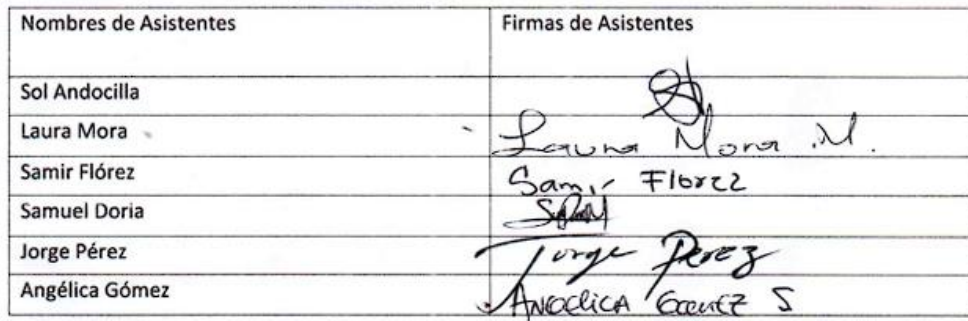 Nombres de Asistentes Firmas de Asistentes
Sol Andocilla
Laura Mora Laura Mora M.
Samir Flórez Samir Florez
Samuel Doria
Jorge Pérez Jorge Perez
Angélica Gómez ANGELICA GOMEZ S